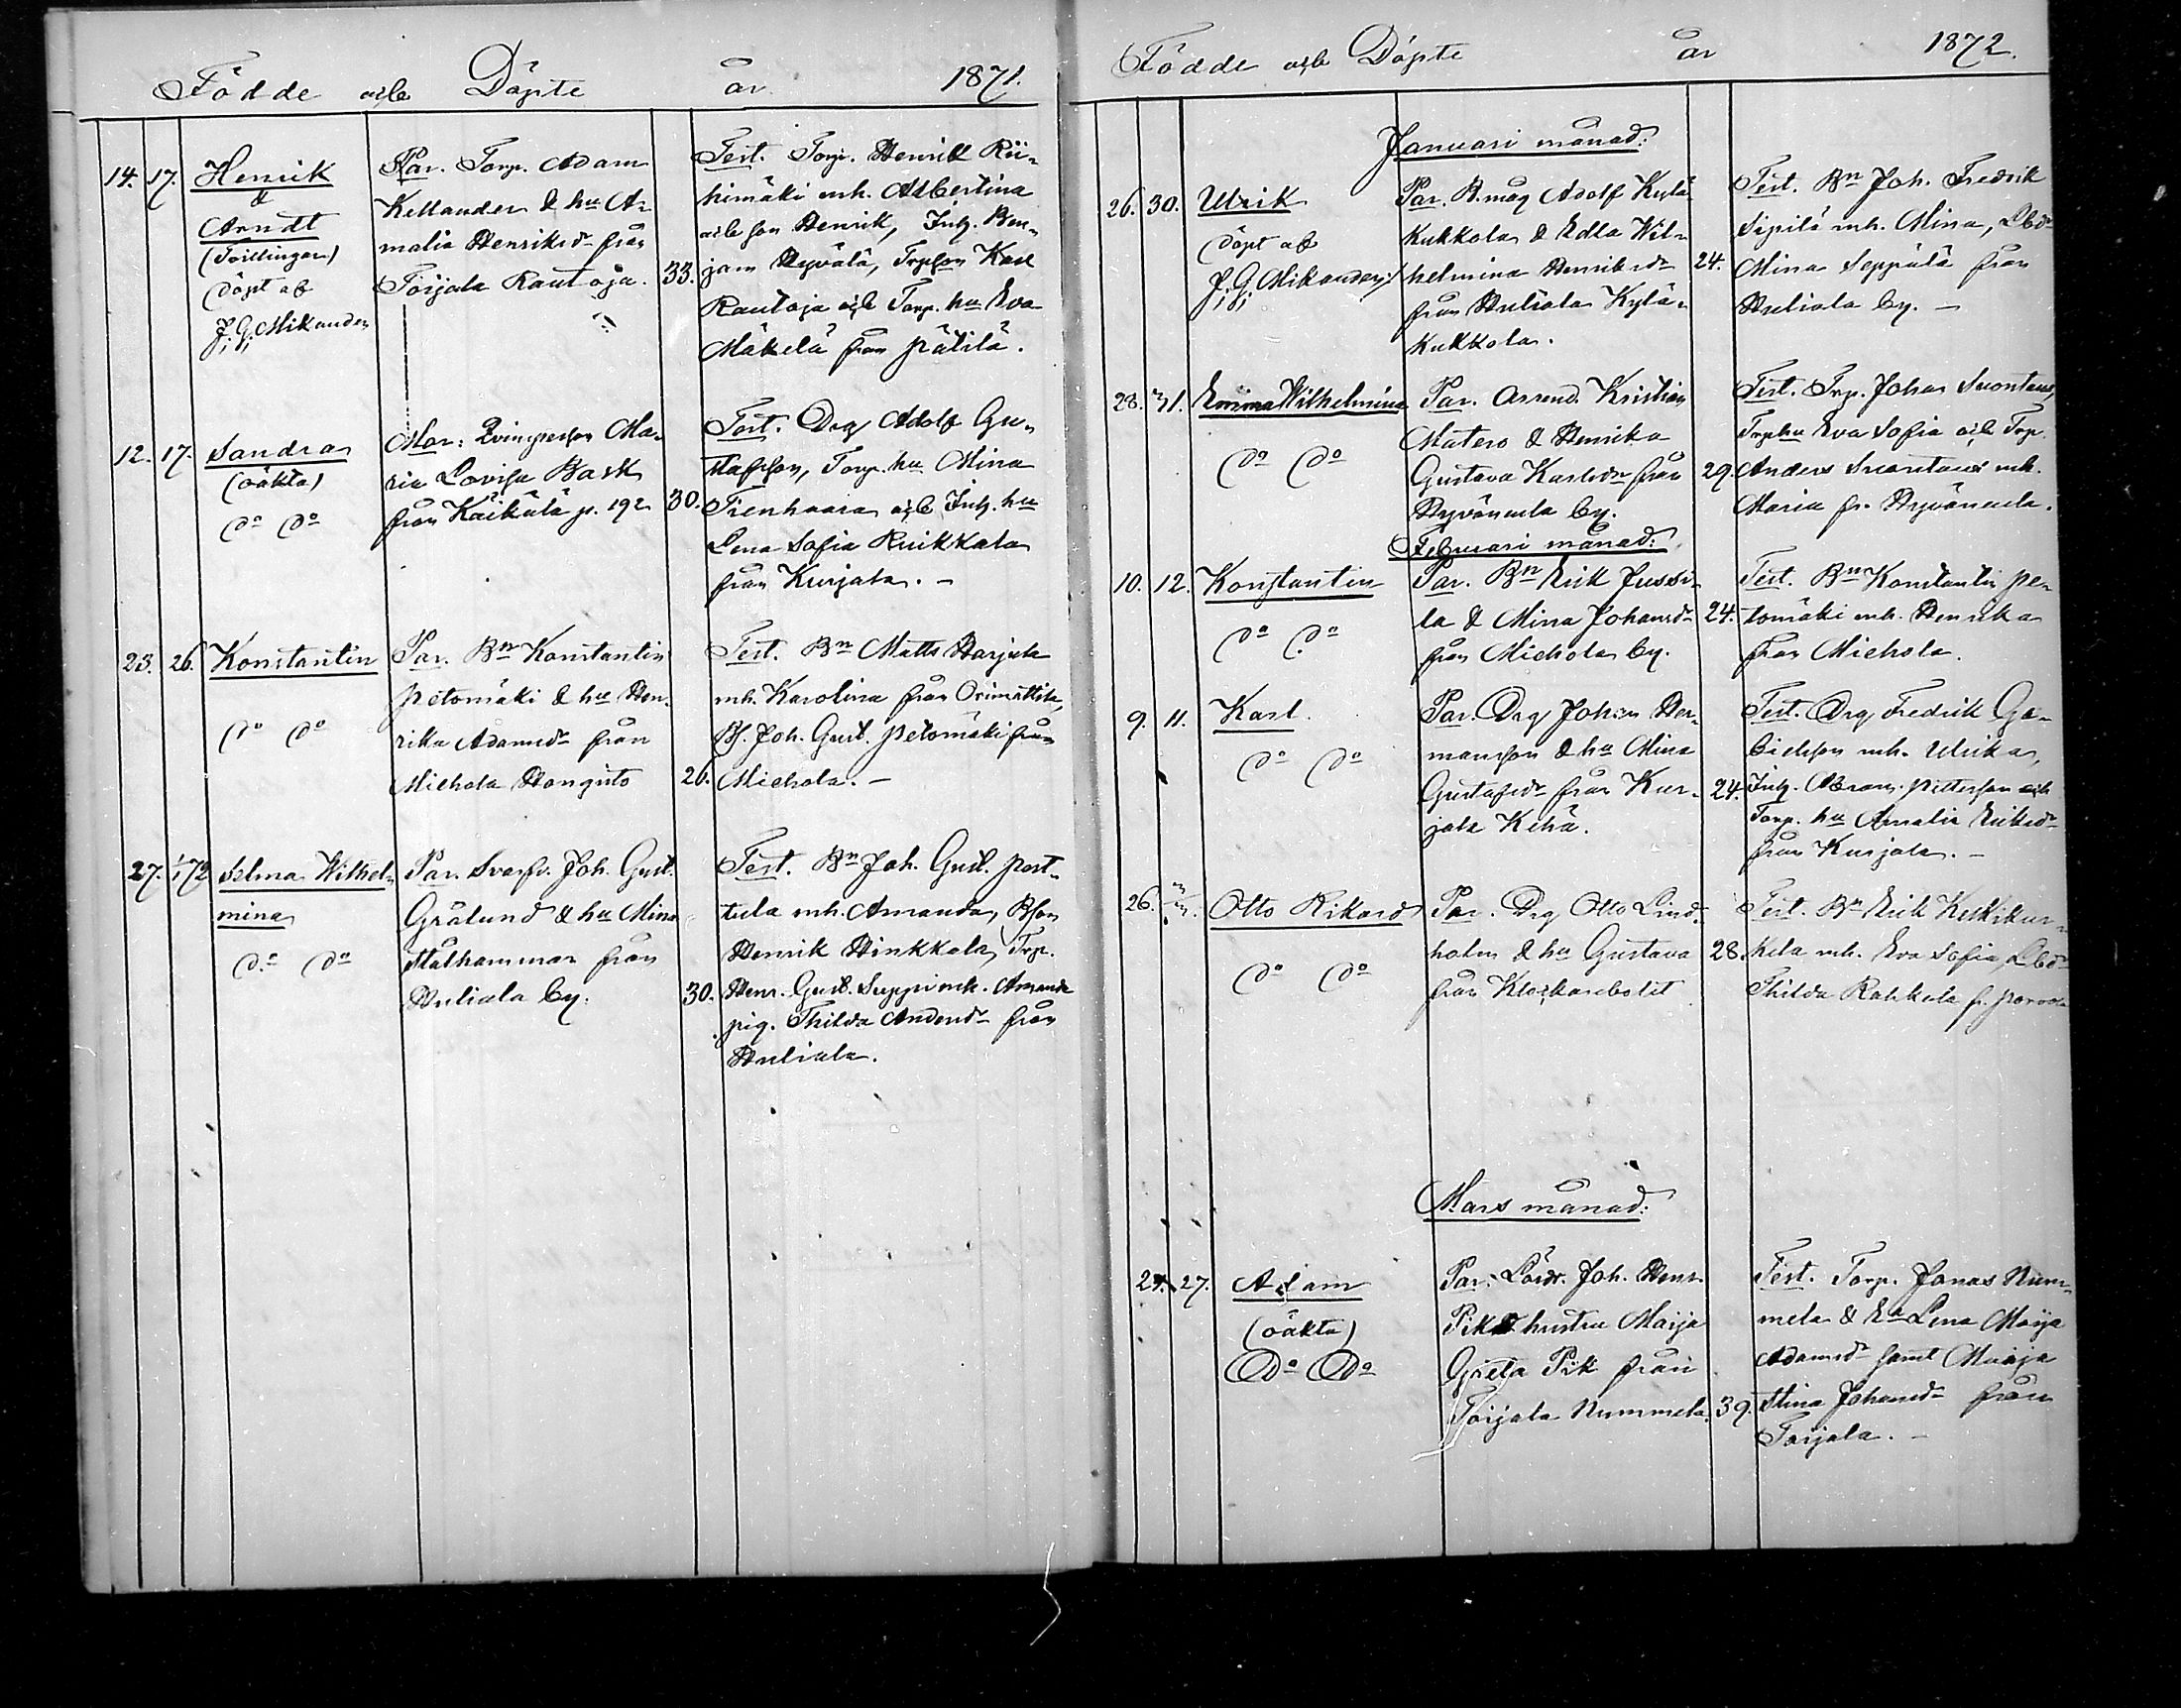 Födde och Döpte år 1871.
14. 17. Henrik
&
Arndt
(Tvillingar)
döpt af
J. G. Mikander
Par. Torp. Adam
Kellander & hu A-
malia Henriksdr från
Toijala Rautoja.
33.
Test. Torp. Henrik Rii-
himäki mh. Albertina
och son Henrik, Inh. Ben-
jam Hyvälä, Trpson Karl
Rautoja och Torp. hu Eva
Mäkelä från Pätilä.
12. 17. Sandra
(oäkta)
do do
Mor: Qvinspersson Ma-
ria Lovisa Bask
från Käikälä p. 192
30.
Test. Drg Adolf Gu-
stafsson, Torp. hu Mina
Tienhaara och Inh. hu
Lena Sofia Ruikkala
från Kurjala. –
23. 26. Konstantin
do do
Par. Bn Konstantin
Petomäki & hu Hen-
rika Adamsdr från
Miehola Hongisto
26.
Test. Bn Matts Harjula
mh. Karolina från Orimattila,
Bs. Joh. Gust. Petomäki från
Miehola. –
27. 1/1 72 Selma Wilhel-
mina
do do
Par. Svarfv. Joh. Gust.
Grålund & hu Mina
Stålhammar från
Huliala by.
30.
Test. Bn Joh. Gust. Pert-
tula mh. Amanda, Bson
Henrik Hinkkala, Trp.
Henr. Gust. Seppi mh. Amanda
pig. Thilda Andersdr från
Huliala.
Födde och Döpte år 1872.
Januari månad:
26. 30. Ulrik
döpt af
J. G. Mikander
Par. B.måg Adolf Kylä-
Kukkola & Edla Wil-
helmina Henriksdr
från Huliala Kylä-
Kukkola.
24.
Test. Bn Joh. Fredrik
Sipilä mh. Mina, Lbdr
Mina Seppälä från
Huliala by. –
28. 31. Emma Wilhelmina
do do
Par. Arrend. Kristian
Matero & Henrika
Gustava Karlsdr från
Hyväneula by.
29.
Test. Trp. Johan Suontaus,
Trphu Eva Sofia och Trp.
Anders Suontaus mh.
Maria fr. Hyväneula.
Februari månad:
10. 12. Konstantin
do do
Par. Bn Erik Jussi-
la & Mina Johansdr
från Miehola by.
24.
Test. Bn Konstantin Pe-
tomäki mh. Henrika
från Miehola.
9. 11. Karl
do do
Par. Drg Johan Her-
mansson & hu Mina
Gustafsdr från Kur-
jala Kehä.
24.
Test. Drg Fredrik Ga-
brielsson mh. Ulrika,
Inh. Abram Pettersson och
Torp. hu Amalia Eriksdr
från Kurjala. –
26. Otto Rikard
do do
Par. Drg Otto Lind-
holm & hu Gustava
från Klockarebolet
28.
Test. Bn Erik Keskikur-
kela mh. Eva Sofia, Lbdr
Thilda Rahkala f. Porvola
Mars månad:
24. 27. Adam
(oäkta)
Do Do
Par: Lösdr. Joh. Henr.
Pik hustru Maija
Greta Pik från
Toijala Nummela.
39.
Test. Torp. Jonas Num-
mela & hu Lena Maija
Adamsdr samt Maija
Stina Johansdr från
Toijala. –